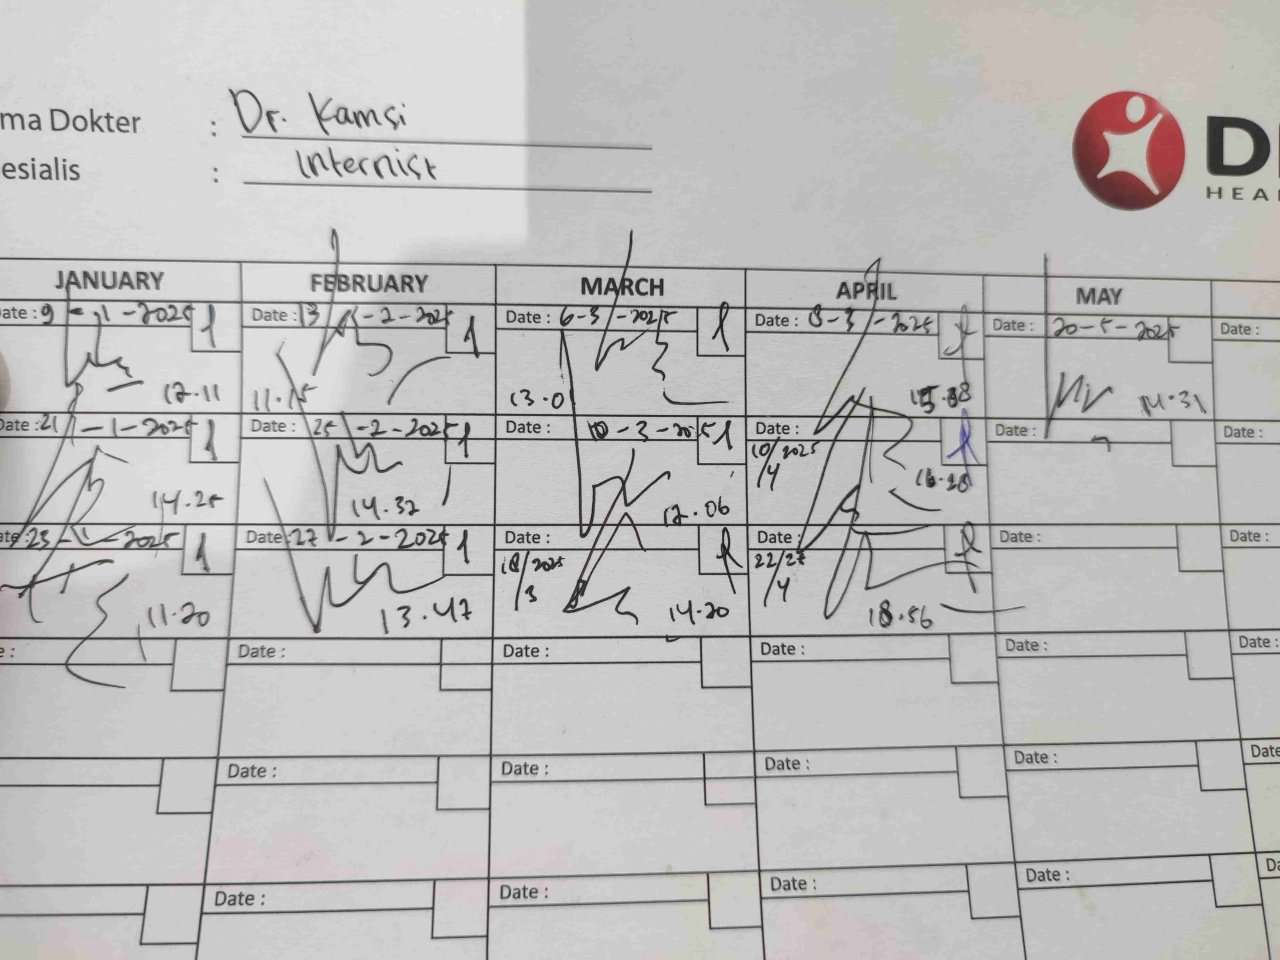 ma Dokter : Dr. Kamsi
esialis : Internist
D
HEA
JANUARY FEBRUARY MARCH APRIL MAY
ate : 9 - 1 - 2025 1 Date : 13 - 2 - 2025 1 Date : 6-3 - 2025 1 Date : 8-3 - 2025 Date : 20-5-2025 Date :
12.11 11.15 13.0 14.31
Date : 21 - 1 - 2025 1 Date : 25 - 2 - 2025 1 Date : 10-3-2025 1 Date : 10/4 2025 Date : Date :
14.25 14.32 12.06 16.28
ate : 23 - 1 - 2025 1 Date : 27 - 2 - 2025 1 Date : 18/3 2025 Date : 22/4 Date : Date :
11.20 13.47 14.20 18.56
e : Date : Date : Date : Date : Date :
Date : Date : Date : Date : Date
Date : Date : Date : Date : Da